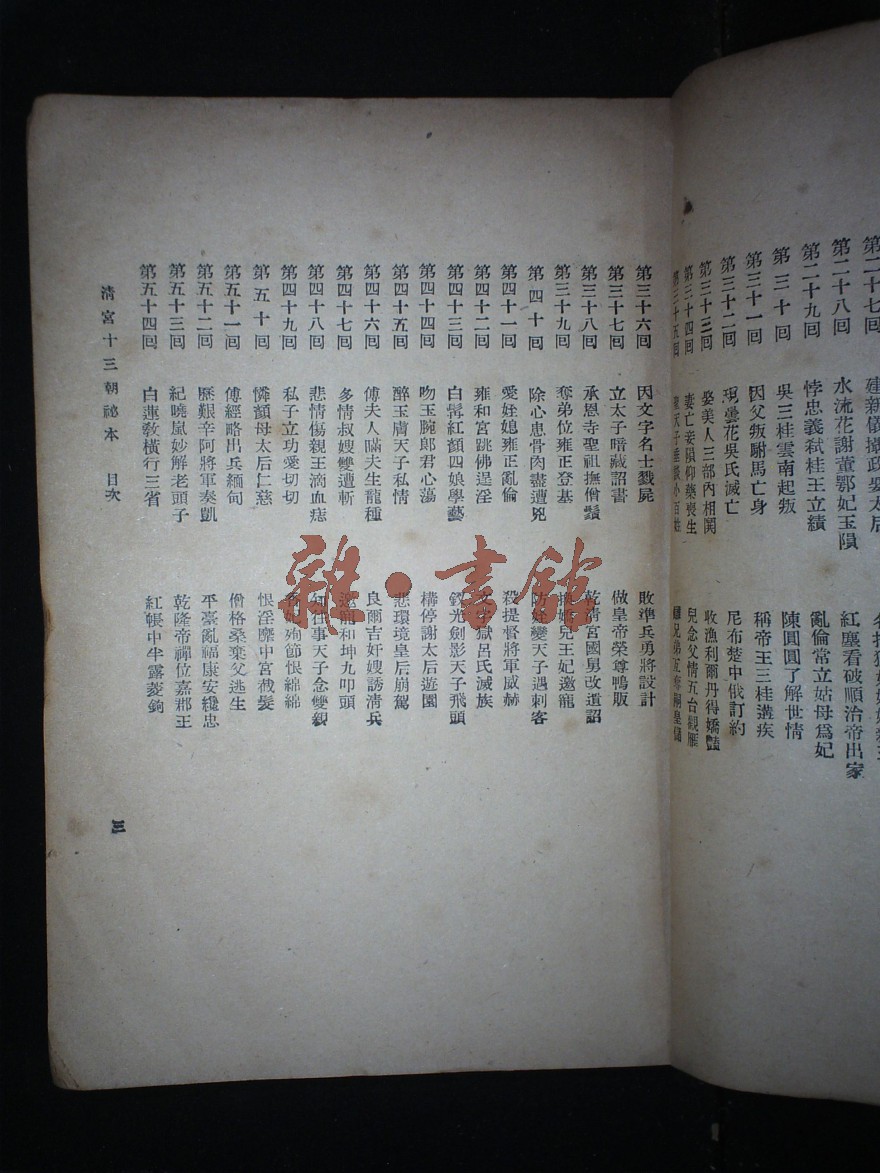 第二十七回 建新儀攝政娶太后
第二十八回 水流花謝董鄂妃玉隕 紅塵看破順治帝出家
第二十九回 悖忠義弒桂王立績 亂倫常立姑母爲妃
第三十回 吳三桂雲南起叛 陳圓圓了解世情
第三十一回 因父叛駙馬亡身 稱帝王三桂遘疾
第三十二回 現曇花吳氏滅亡 尼布楚中俄訂約
第三十三回 娶美人三部內相鬨 收漁利爾丹得嬌豔
第三十四回 妻亡妾隕仰藥喪生 兒念父情五台覲雁
第三十五回 小百姓
第三十六回 因文字名士戮屍 敗準兵勇將設計
第三十七回 立太子暗藏詔書 做皇帝榮尊鴨販
第三十八回 承恩寺聖祖撫僧鬚 乾清宮國舅改遺詔
第三十九回 奪弟位雍正登基 換嬌兒王妃邀寵
第四十回 除心患骨肉盡遭兇 防奸變天子遇刺客
第四十一回 愛姪媳雍正亂倫 殺提督將軍威赫
第四十二回 雍和宮跳佛逞淫 文字獄呂氏滅族
第四十三回 白髯紅顏四娘學藝 劍光影天子飛頭
第四十四回 吻玉腕郎君心蕩 構停謝太后遊園
第四十五回 醉玉膚天子私情 悲環境皇后崩駕
第四十六回 傅夫人瞞夫生龍種 良爾吉奸嫂誘清兵
第四十七回 多情叔嫂雙遭斬 邀寵和坤九叩頭
第四十八回 悲情傷親王滴血痣 知往事天子念雙親
第四十九回 私子立功愛切切 香妃殉節恨綿綿
第五十回 憐顏母太后仁慈 恨淫靡中宮截髮
第五十一回 傅經略出兵緬甸 僧格桑棄父逃生
第五十二回 歷艱辛阿將軍奏凱 平臺亂福康安纔忠
第五十三回 紀曉嵐妙解老頭子 乾隆帝禪位嘉郡王
第五十四回 白蓮敎橫行三省 紅帳中半露菱鉤
清宮十三朝祕本 目次
三
雜·書館